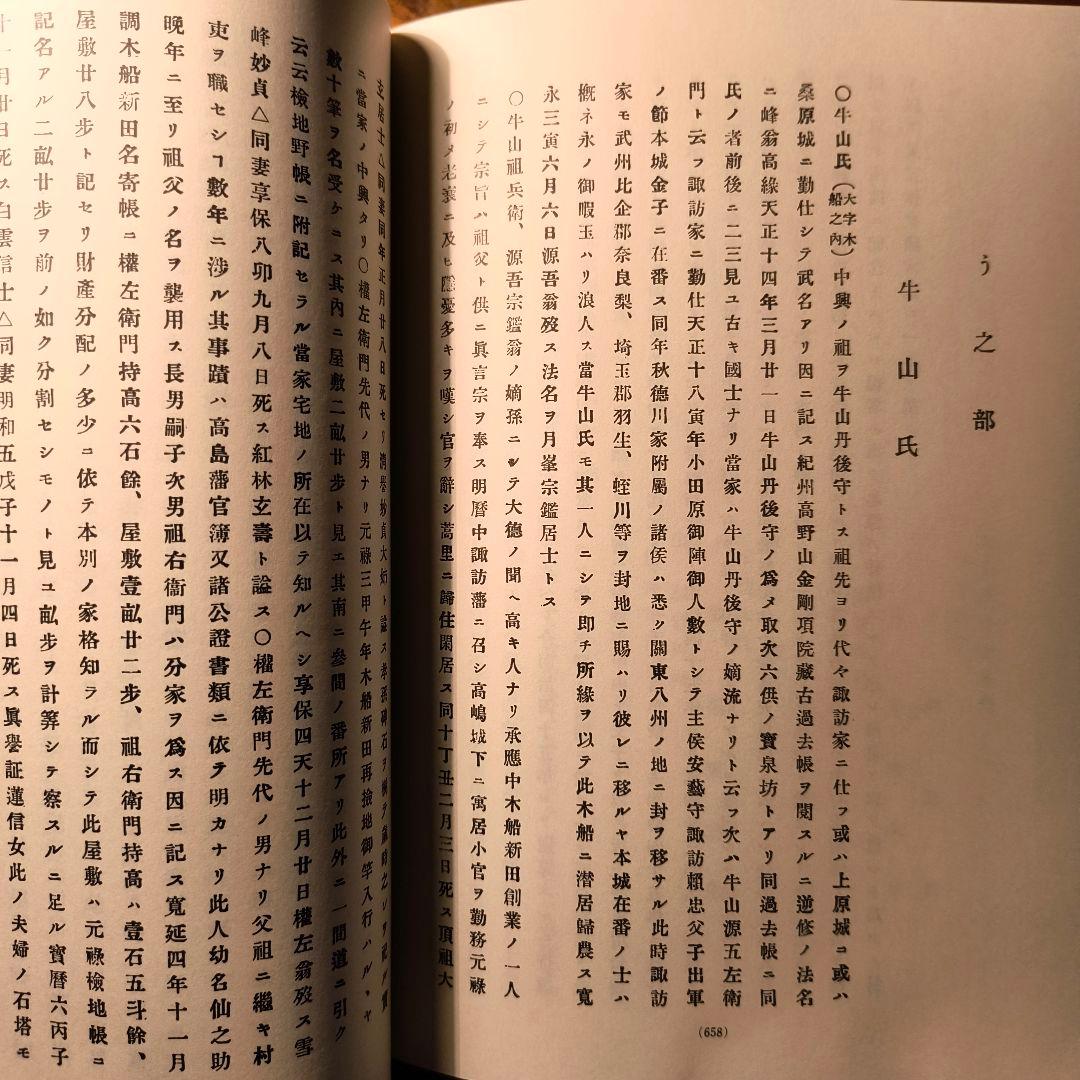 う之部
牛山氏
〇牛山氏(大字木船之內)中興ノ祖ヲ牛山丹後守トス祖先ヨリ代々諏訪家ニ仕フ或ハ上原城ニ或ハ
桑原城ニ勤仕シテ武名アリ因ニ記ス紀州高野山金剛項院藏古過去帳ヲ閱スルニ逆修ノ法名
ニ峰翁高綠天正十四年三月廿一日牛山丹後守ノ爲メ取次六供ノ寶泉坊トアリ同過去帳ニ同
氏ノ者前後ニ二三見ユ古キ國士ナリ當家ハ牛山丹後守ノ嫡流ナリト云フ次ハ牛山源五左衛
門ト云フ諏訪家ニ勤仕天正十八寅年小田原御陣御人數トシテ主侯安藝守諏訪賴忠父子出軍
ノ節本城金子ニ在番ス同年秋德川家附屬ノ諸侯ハ悉ク關東八州ノ地ニ封ヲ移サル此時諏訪
家モ武州比企郡奈良梨、埼玉郡羽生、蛭川等ヲ封地ニ賜ハリ彼レニ移ルヤ本城在番ノ士ハ
槪ネ永ノ御暇玉ハリ浪人ス當牛山氏モ其一人ニシテ即チ所緣ヲ以テ此木船ニ潜居歸農ス寬
永三寅六月六日源吾翁歿ス法名ヲ月峯宗鑑居士トス
〇牛山祖兵衛、源吾宗鑑翁ノ嫡孫ニシテ大德ノ聞ヘ高キ人ナリ承應中木船新田創業ノ一人
ニシテ宗旨ハ祖父ト供ニ眞言宗ヲ奉ス明曆中諏訪藩ニ召シ高嶋城下ニ寓居小官ヲ勤務元祿
ノ初メ老衰ニ及ヒ隱憂多キヲ嘆シ官ヲ辭シ蒿里ニ歸住閑居ス同十丁丑二月三日死ス頂祖大
(658)
玄居士△同妻同年正月廿八日死セリ
ニ當家ノ中興タリ〇權左衛門先代ノ男ナリ元祿三甲午年木船新田再撿地御竿入行ハルヽヤ
數十筆ヲ名受ケニス其內ニ屋敷二畝廿步ト見エ其南ニ參間ノ番所アリ此外ニ一間道ニ引ク
云云檢地野帳ニ附記セラル當家宅地ノ所在以テ知ルヘシ享保四天十二月廿日權左翁歿ス雪
峰妙貞△同妻享保八卯九月八日死ス紅林玄壽ト謚ス〇權左衛門先代ノ男ナリ父祖ニ繼キ村
吏ヲ職セシヿ數年ニ涉ル其事蹟ハ高島藩官簿又諸公證書類ニ依テ明カナリ此人幼名仙之助
晩年ニ至リ祖父ノ名ヲ襲用ス長男嗣子次男祖右衞門ハ分家ヲ爲ス因ニ記ス寬延四年十一月
調木船新田名寄帳ニ權左衛門持高六石餘、屋敷壹畝廿二步、祖右衛門持高ハ壹石五斗餘、
屋敷廿八步ト記セリ財產分配ノ多少ニ依テ本別ノ家格知ラル而シテ此屋敷ハ元祿檢地帳ニ
記名アル二畝廿步ヲ前ノ如ク分割セシモノト見ユ畝步ヲ計算シテ察スルニ足ル寶曆六丙子
十一月廿日死ス白雲信士△同妻明和五戊子十一月四日死ス眞譽証蓮信女此ノ夫婦ノ石塔モ